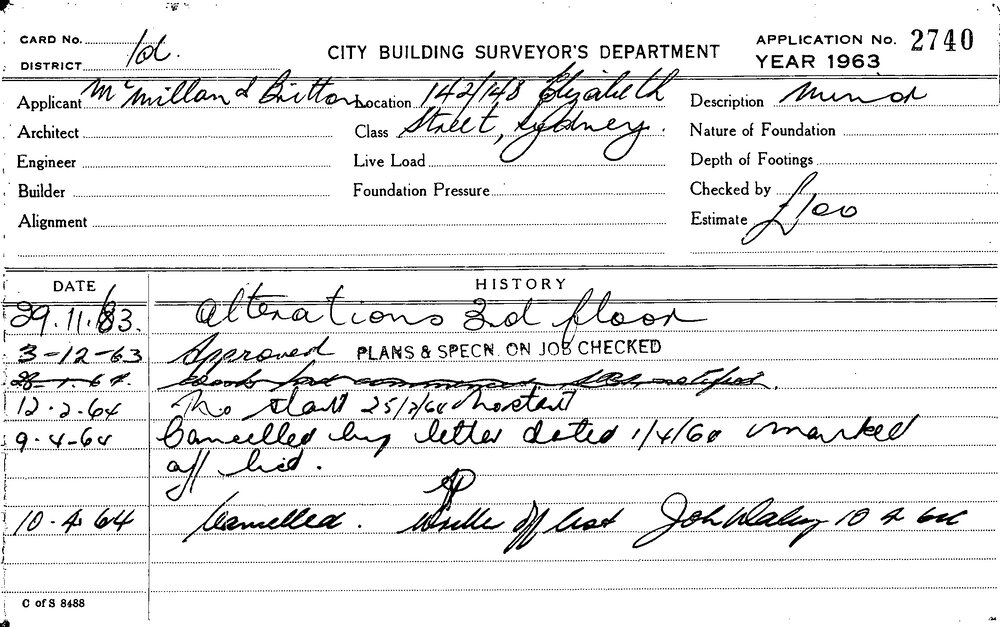 CARD No. 1d.
DISTRICT
CITY BUILDING SURVEYOR'S DEPARTMENT
APPLICATION No. 2740
YEAR 1963
Applicant McMillan & Britton
Location 142/148 Elizabeth
Description Minor
Architect
Class Street, Sydney.
Nature of Foundation
Engineer
Live Load
Depth of Footings
Builder
Foundation Pressure
Checked by
Alignment
Estimate £100
DATE
HISTORY
29.11.63. Alterations 3rd floor
3-12-63 Approved PLANS & SPECN. ON JOB CHECKED
12.2.64 No start 25/2/64 No start
9.4.64 Cancelled by letter dated 1/4/64 marked
off list.
10.4.64 Cancelled. off list John Daley 10 4 64
C of S 8488